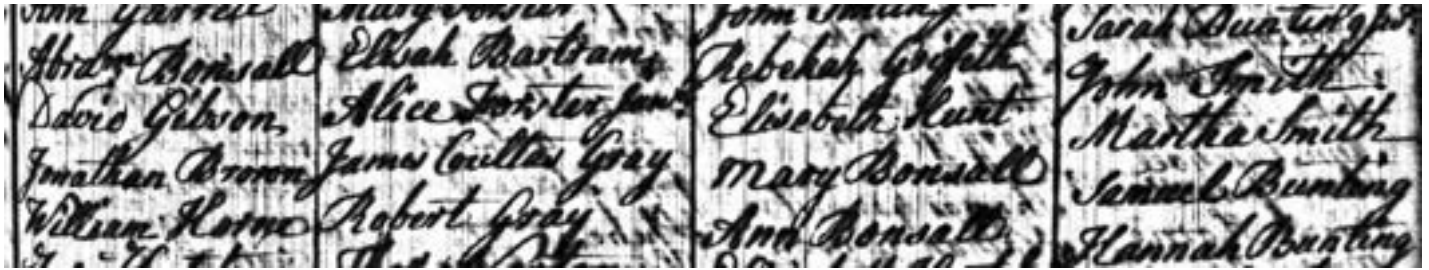 Ann Garrett
Abram Bonsall
David Gibson
Jonathan Brown
William Horne
Elisah Bartram
Alice Forster Junr
James Coultas Gray
Robert Gray
Rebekah Griffith
Elisebeth Hunt
Mary Bonsall
Ann Bonsall
Sarah Bunting Junr
John Smith
Martha Smith
Samuel Bunting
Hannah Bunting